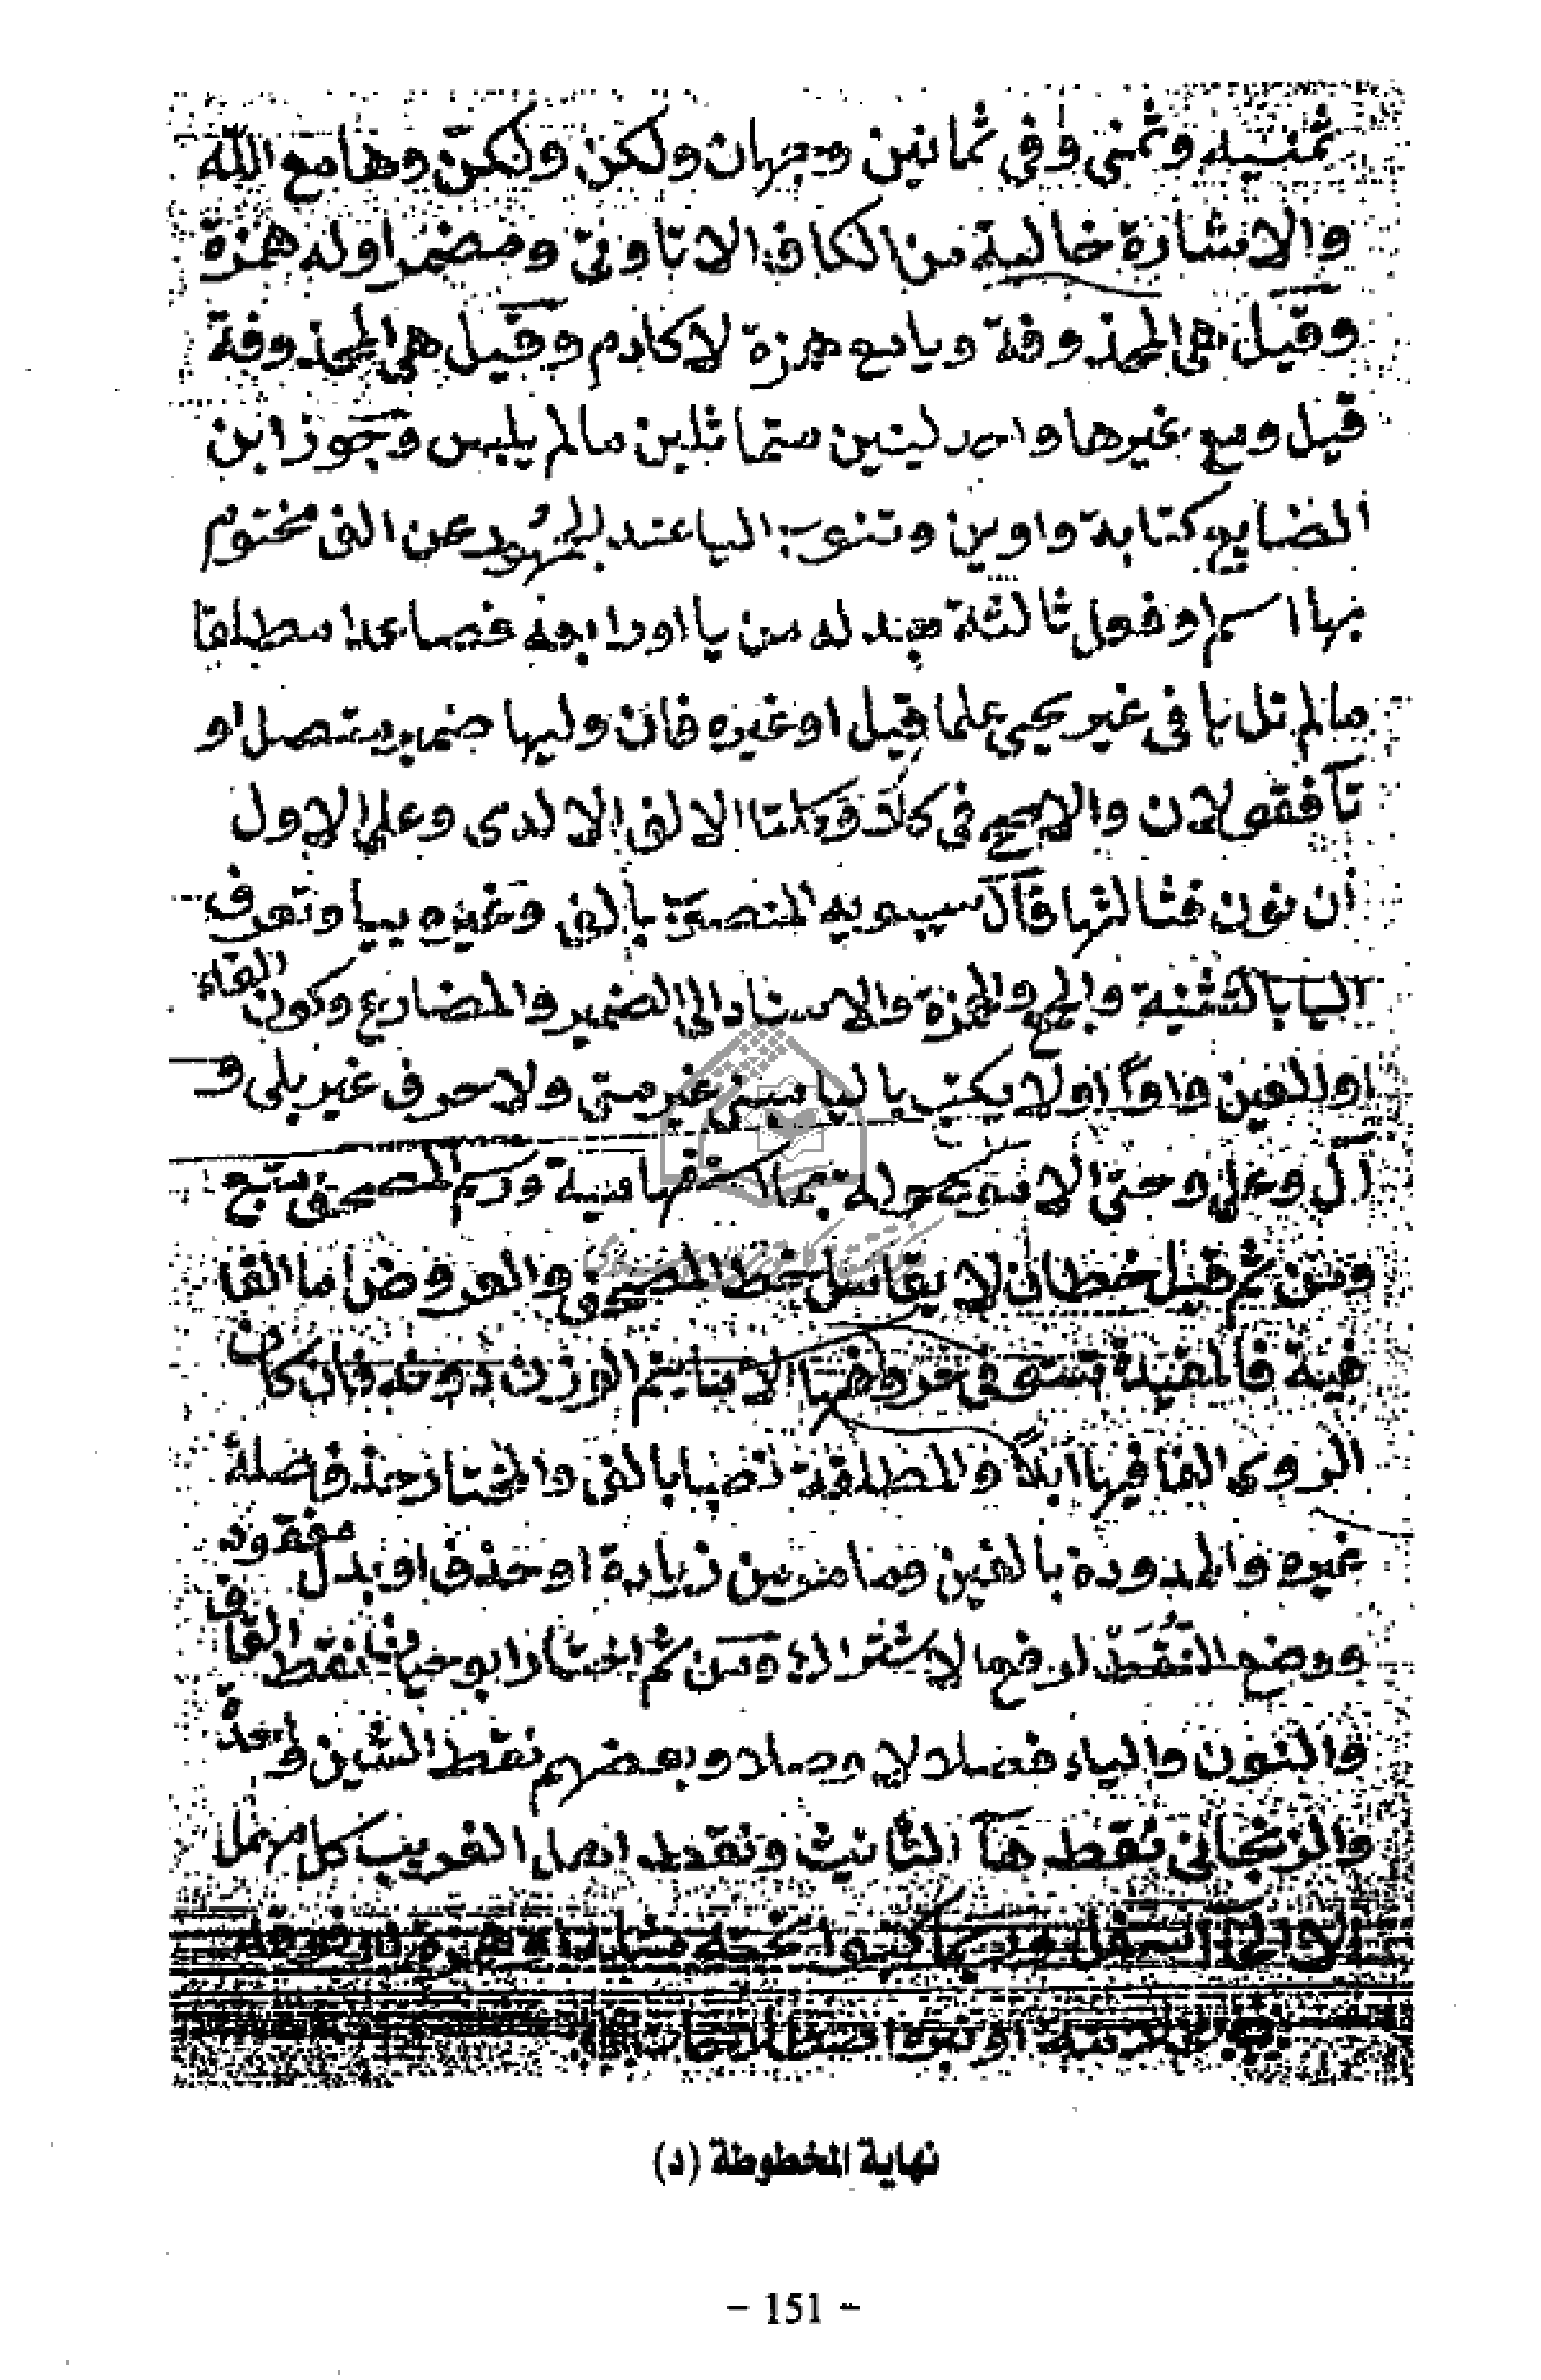 ثمنيه وثمنى وفي ثمانين وجهان ولكن ولكنّ وها مع الله
والاشارة خالية من الكاف الا تا وتي ومضمر اوله همزة
وقيل هي المحذوفة ويا مع همزة لا كادم وقيل هي المحذوفة
قيل ومع غيرها واحد لينين متماثلين ما لم يلبس وجوز ابن
الضايع كتابة واوين وتنوب اليا عند الجمهور عن الف مختوم
بها اسم او فعل ثالثة مبدلة من يا او رابعة فصاعدا مطلقا
ما لم تل يا في غير يحيى علما قيل او غيره فان وليها ضمير متصل او
تا فقولان والاصح في كلا وكلتا الالف الا لدى وعلى الاول
ان نون فثالثها قال سيبويه المنصوب بالف وغيره بيا وتعرف
اليا بالتثنية والجمع والمرة والاسناد الى الضمير والمضارع وكون الفاء
او العين واوا او لا يكتب باليا مبني غير متى ولا حرف غير بلى و
الى وعلى وحتى الا موصولة بما الاستفهامية ورسم المصحف متبع
ومن ثم قيل خطان لا يقاسان خط المصحف والعروض اما القا
فية فالمقيدة تستوفى عروضيا الا ما يتم الوزن دونه فان كان
الروي الفا فيها ابدا والمطلقة نصبا بالف والمختار حذف صلة
غيره والممدودة بالفين وما مر من زيادة او حذف او بدل مفقود
ووضع النقط لرفع الاشتراك ومن ثم اختار ابو حيان نقط القاف
والنون والياء فصلا لا وصلا وبعضهم نقط الشين واحدة
والزنجاني نقط هآ التانيث ونقط اهل الغريب كل مهمل
الا الحا اسفل وربما كتبوا تحته مثله او همزة او فوقه
نهاية المخطوطة (د)
- 151 -